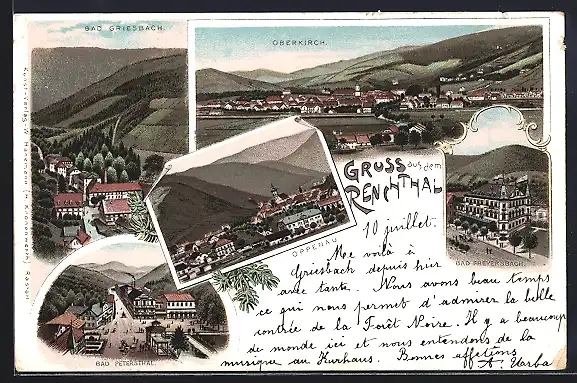 BAD GRIESBACH.
OBERKIRCH.
GRUSS aus dem
RENCHTHAL
OPPENAU
BAD FREYERSBACH.
BAD PETERSTHAL.
10 juillet.
Me voilà à
Griesbach depuis hier
avec tante. Nous avons beau temps
ce qui nous permet d'admirer la belle
contrée de la Forêt Noire. Il y a beaucoup
de monde ici et nous entendons de la
musique au Kurhaus. Bonnes affections
Kunst-Verlag